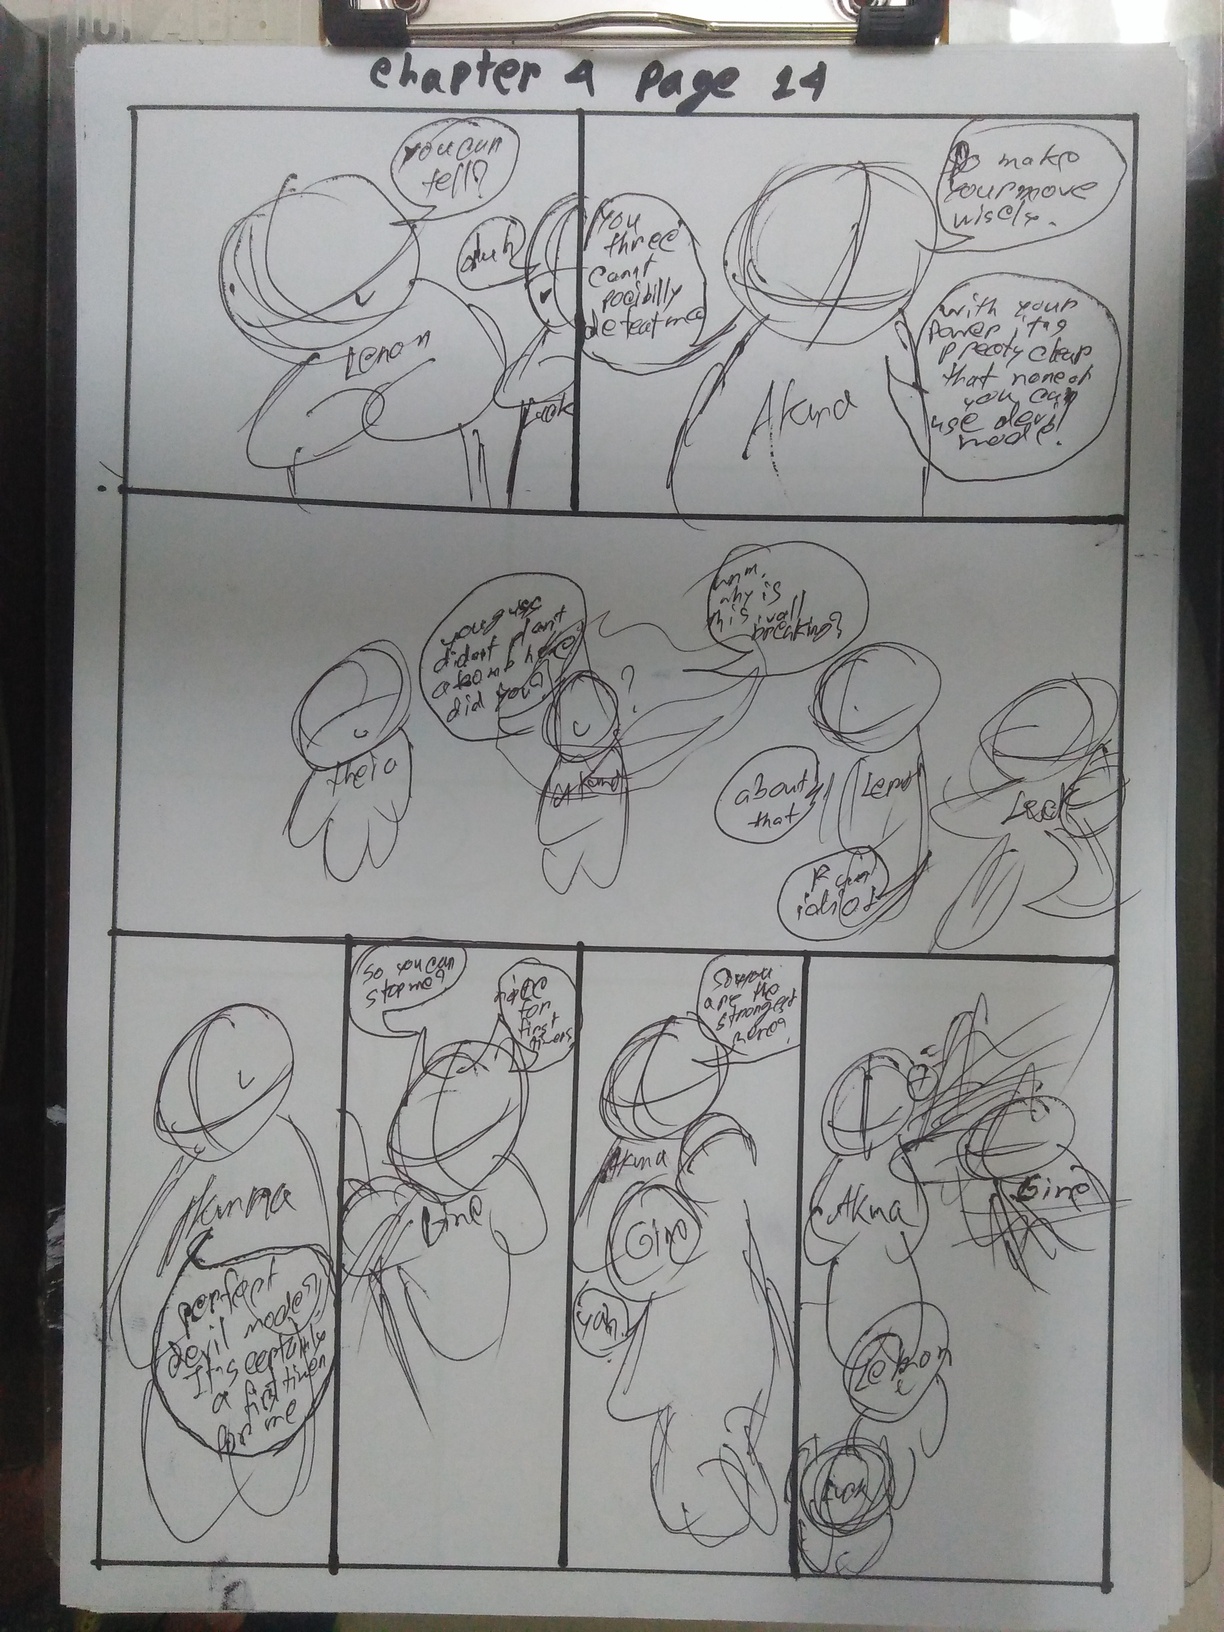 Chapter 4 Page 14
you can
tell?
duh
Lenon
Luck
you
three
cannt
pocibilly
defeat me
So make
your move
wisely.
with your
power it's
preaty clear
that none of
you can
use devil
mode.
Akuna
you guse
dident plant
a bomb here
did you?
umm.
why is
this wall
breaking?
?
theia
Akuna
about
that
Lenon
Luck
idiot
Akunna
perfect
devil mode,
It's
a first timer
for me
So you can
stop me?
nice
for
first
timers
Gine
So you
are the
strongest
here?
Akuna
Gine
yah.
Akuna
Gine
Lenon
Luck